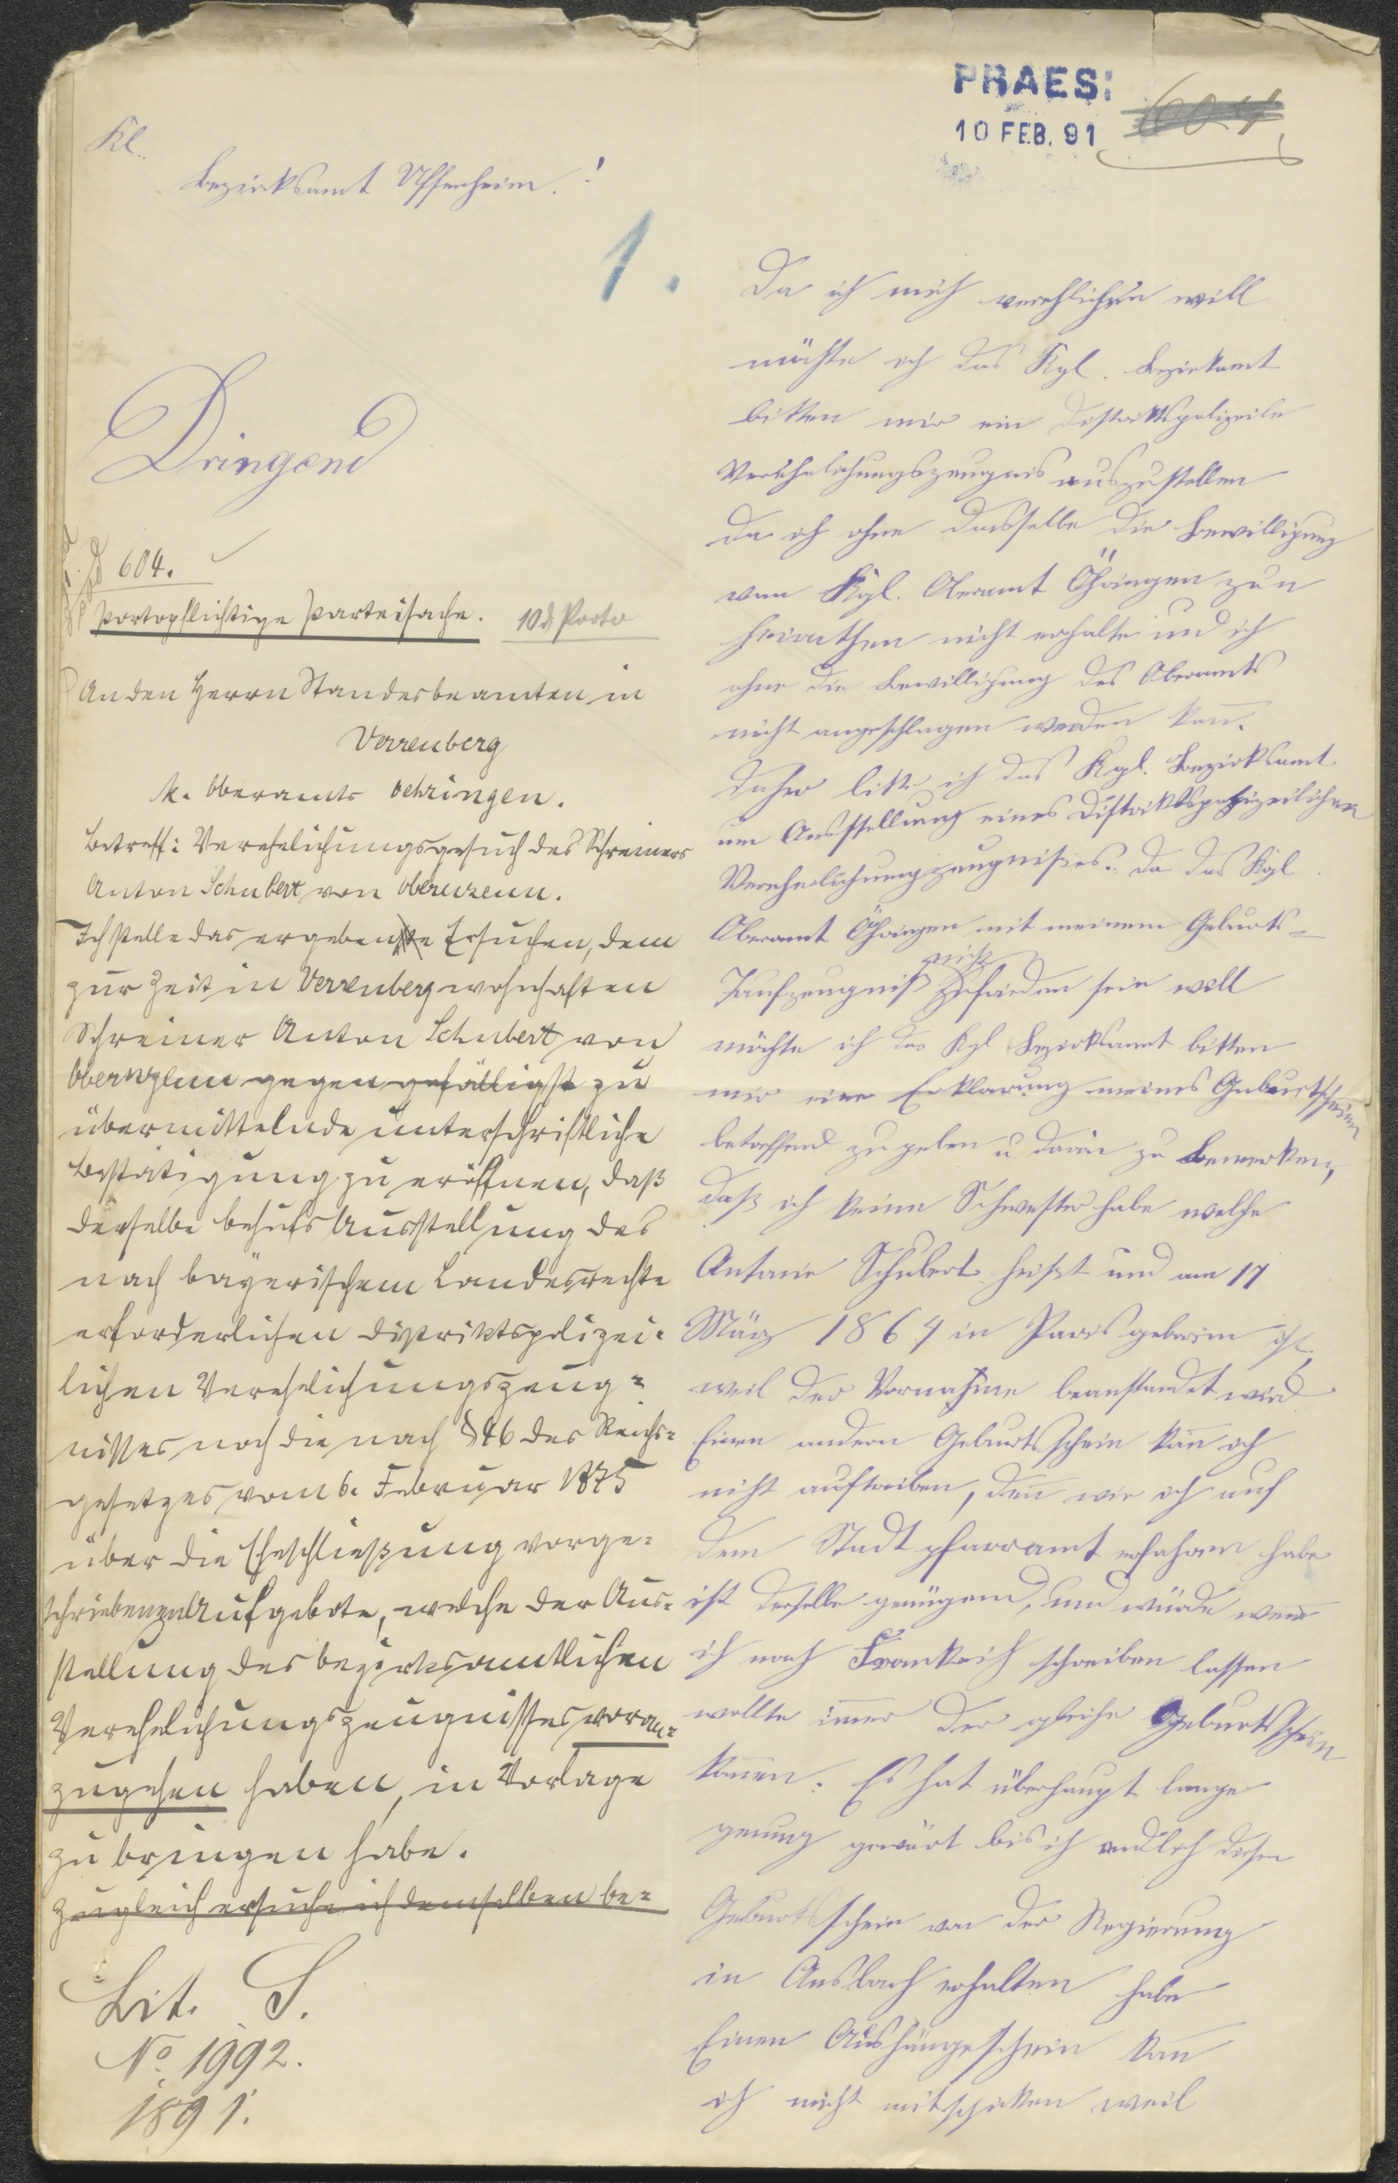 PRAES:
10 FEB. 91
604
Kl.
Bezirksamt Uffenheim.!
1.
Dringend
604.
portopflichtige Parteisache. 10 ₰ Porto
An den Herrn Standesbeamten in
Verrenberg
k. Oberamts Oehringen.
Betreff: Verehelichungsgesuch des Schreiners
Anton Schubert von Obernzenn.
Ich stelle das ergebenste Ersuchen, dem
zur Zeit in Verrenberg wohnhaften
Schreiner Anton Schubert von
Obernzenn gegen gefälligst zu
übermittelnde unterschriftliche
Bestätigung zu eröffnen, daß
derselbe behufs Ausstellung des
nach bayerischem Landesrechte
erforderlichen distriktspolizei-
lichen Verehelichungszeug-
nisses noch die nach § 46 des Reichs-
gesetzes vom 6. Februar 1875
über die Eheschließung vorge-
schriebenen Aufgebote, welche der Aus-
stellung des bezirksamtlichen
Verehelichungszeugnisses voran-
zugehen haben, in Vorlage
zu bringen habe.
Zugleich ersuche ich demselben be-
Lit. S.
No 1992.
1891.
Da ich mich verehlichen will
möchte ich das Kgl. Bezirkamt
bitten mir ein Distriktspolizeile
Verehelichungszeugnis auszustellen
da ich ohne dasselbe die Bewilligung
vom Kgl. Oberamt Öhringen zun
heirathen nicht erhalte und ich
ohne die Bewilligung des Oberamts
nicht angeschlagen werden kan̄.
Daher bitte ich das Kgl. Bezirksamt
um Ausstellung eines Distriktspolizeilichen
Verehelichungzeugnißes. Da das Kgl.
Oberamt Öhringen mit meinem Geburts-
Taufzeugniß nicht zufrieden sein will
möchte ich das Kgl Bezirksamt bitten
mir eine Erklärung meines Geburtscheins
betreffend zu geben u darin zu bemerken,
daß ich keine Schwester habe welche
Antonie Schubert heißt und am 17
März 1864 in Paris geboren ist,
weil der Vornahme beanstandet wird
Einen andern Geburtsschein kan̄ ich
nicht auftreiben, den̄ wie ich auf
dem Stadtpfarramt erfahren habe
ist derselbe genügend, und würde wen̄
ich nach Frankreich schreiben lassen
wollte im̄er der gleiche Geburtsschein
kom̄en. Es hat überhaupt lange
genung gewärt bis ich endlich diesen
Geburtsschein von der Regierung
in Ansbach erhalten habe
Einen Aushängeschein kan̄
ich nicht mitschicken weil